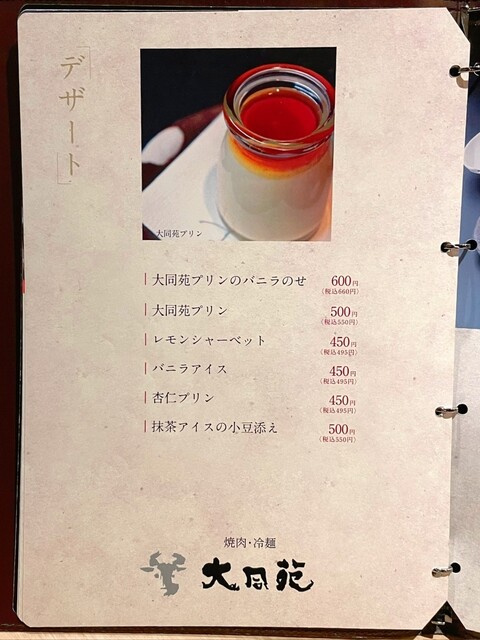 デザート
大同苑プリン
大同苑プリンのバニラのせ 600円
(税込660円)
大同苑プリン 500円
(税込550円)
レモンシャーベット 450円
(税込495円)
バニラアイス 450円
(税込495円)
杏仁プリン 450円
(税込495円)
抹茶アイスの小豆添え 500円
(税込550円)
焼肉・冷麺
大同苑